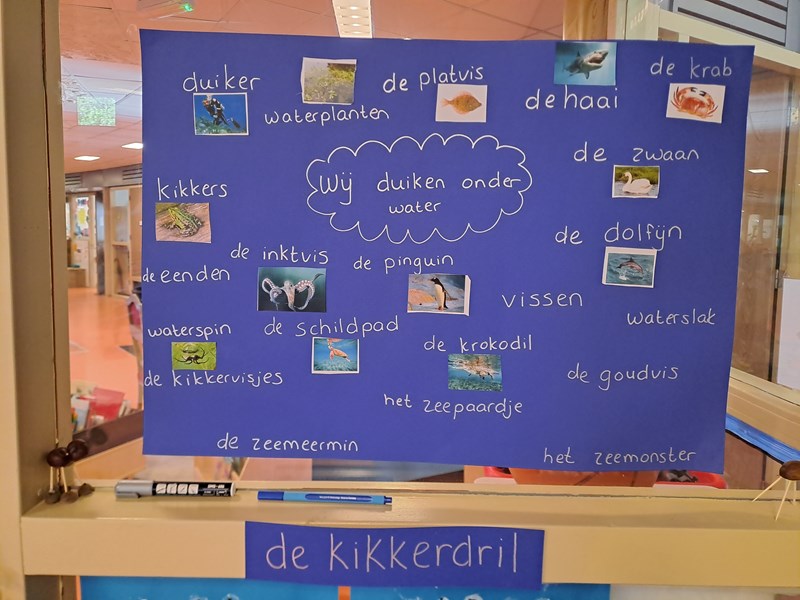 duiker
waterplanten
de platvis
de haai
de krab
Wij duiken onder
water
de zwaan
kikkers
de dolfijn
de inktvis
de pinguin
de eenden
vissen
waterslak
waterspin
de schildpad
de krokodil
de kikkervisjes
de goudvis
het zeepaardje
de zeemeermin
het zeemonster
de kikkerdril